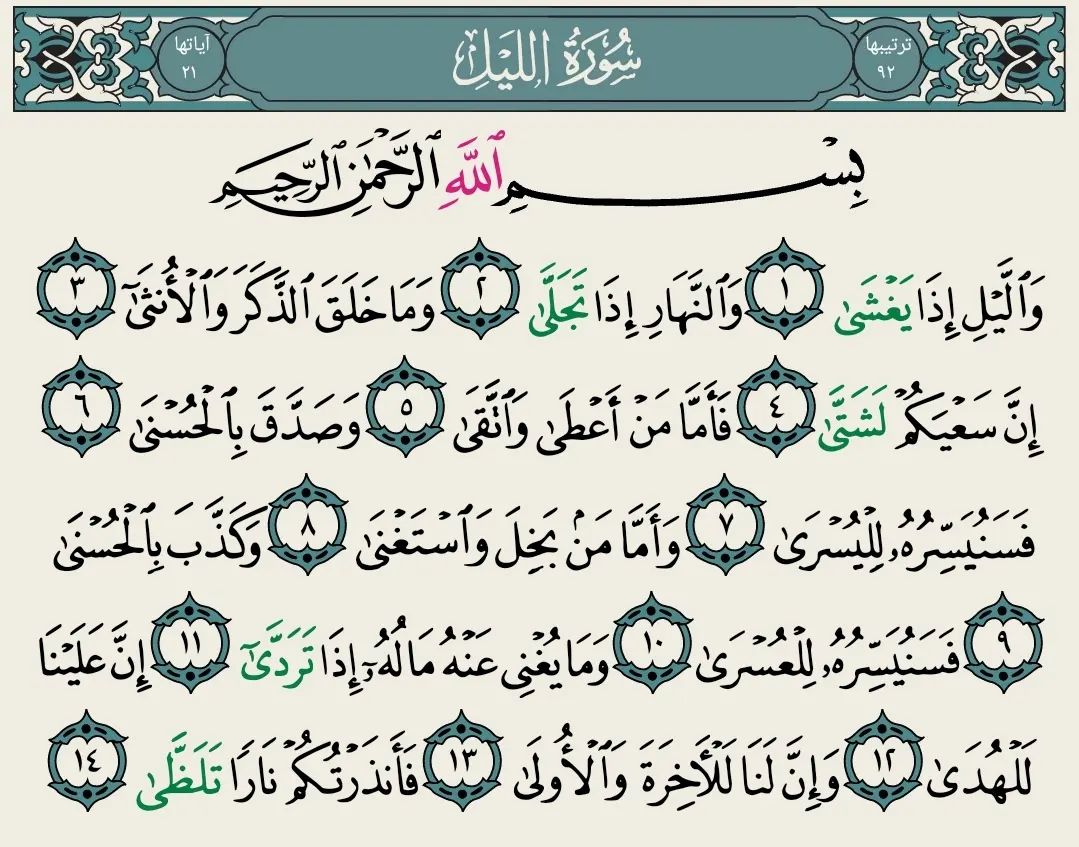 ترتيبها ٩٢
سُورَةُ اللَّيْلِ
آياتها ٢١
بِسْمِ ٱللَّهِ ٱلرَّحْمَٰنِ ٱلرَّحِيمِ
وَٱلَّيْلِ إِذَا يَغْشَىٰ ١ وَٱلنَّهَارِ إِذَا تَجَلَّىٰ ٢ وَمَا خَلَقَ ٱلذَّكَرَ وَٱلْأُنثَىٰٓ ٣
إِنَّ سَعْيَكُمْ لَشَتَّىٰ ٤ فَأَمَّا مَنْ أَعْطَىٰ وَٱتَّقَىٰ ٥ وَصَدَّقَ بِٱلْحُسْنَىٰ ٦
فَسَنُيَسِّرُهُۥ لِلْيُسْرَىٰ ٧ وَأَمَّا مَنۢ بَخِلَ وَٱسْتَغْنَىٰ ٨ وَكَذَّبَ بِٱلْحُسْنَىٰ
٩ فَسَنُيَسِّرُهُۥ لِلْعُسْرَىٰ ١٠ وَمَا يُغْنِى عَنْهُ مَالُهُۥٓ إِذَا تَرَدَّىٰٓ ١١ إِنَّ عَلَيْنَا
لَلْهُدَىٰ ١٢ وَإِنَّ لَنَا لَلْأَخِرَةَ وَٱلْأُولَىٰ ١٣ فَأَنذَرْتُكُمْ نَارًا تَلَظَّىٰ ١٤